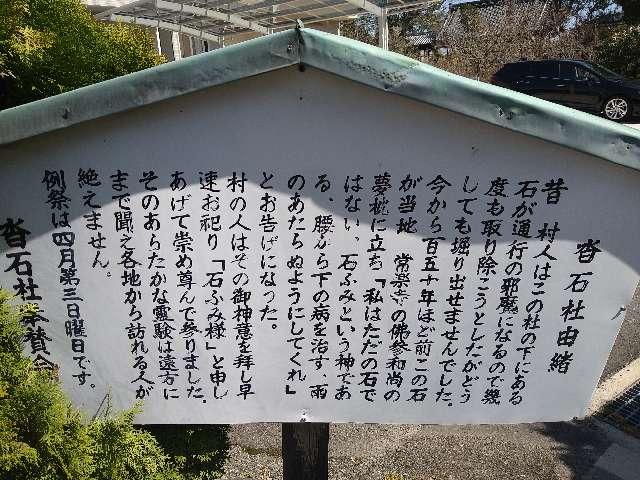 沓石社由緒
昔 村人はこの社の下にある
石が通行の邪魔になるので幾
度も取り除こうとしたがどう
しても堀り出せませんでした。
今から百五十年ほど前この石
が当地 常楽寺の佛参和尚の
夢枕に立ち「私はただの石で
はない。石ふみという神であ
る、腰から下の病を治す、雨
のあたらぬようにしてくれ」
とお告げになった。
村の人はその御神意を拜し早
速お祀り「石ふみ様」と申し
あげて崇め尊んで参りました。
そのあらたかな霊験は遠方に
まで聞え各地から訪れる人が
絶えません。
例祭は四月第三日曜日です。
沓石社奉賛会